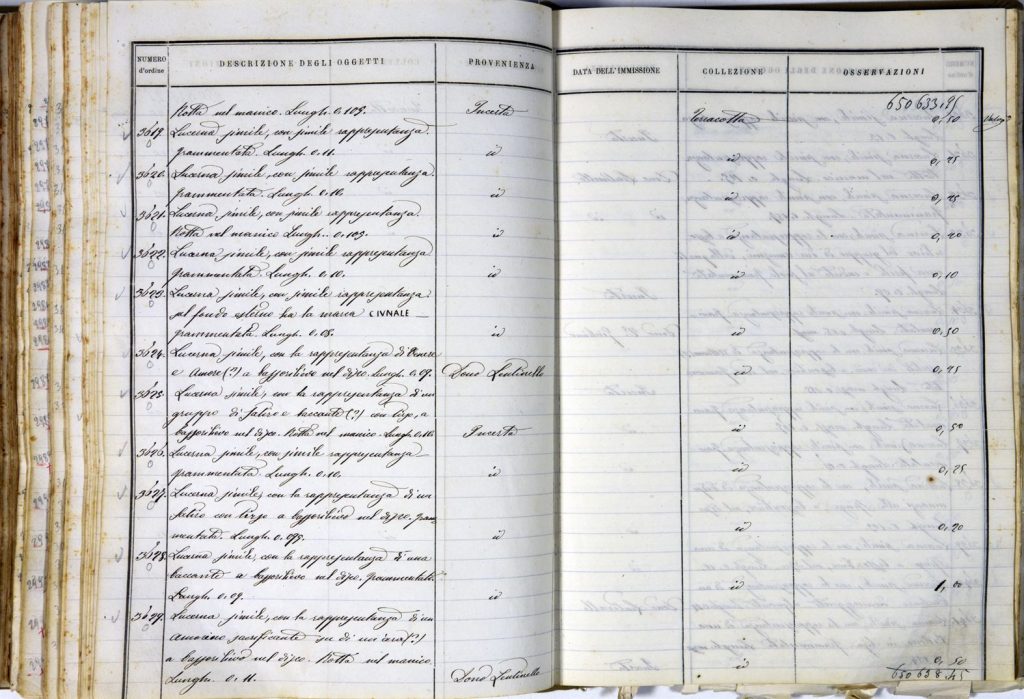 NUMERO d'ordine DESCRIZIONE DEGLI OGGETTI PROVENIENZA DATA DELL'IMMISSIONE COLLEZIONE OSSERVAZIONI
650 633.95
Rotta nel manico. Lungh. 0.109. Incerta Terracotta 0,50
3619. Lucerna simile, con simile rappresentanza.
frammentata. Lungh. 0.11. id id 0,25
3620. Lucerna simile, con simile rappresentanza
frammentata. Lungh. 0.10. id id 0,25
3621. Lucerna simile, con simile rappresentanza.
Rotta nel manico Lungh. 0.109. id id 0,20
3622. Lucerna simile, con simile rappresentanza
frammentata. Lungh. 0.10. id id 0,10
3623. Lucerna simile, con simile rappresentanza.
nel fondo esterno ha la marca CIVNALE
frammentata. Lungh. 0.08. id id 0,50
3624. Lucerna simile, con la rappresentanza di Venere
e Amore (?) a bassorilievo nel disco. Lungh. 0.09. Dono Lentinello id 0,25
3625. Lucerna simile, con la rappresentanza di un
gruppo di Satiro e baccante (?) con tirso, a
bassorilievo nel disco. Rotta nel manico. Lungh. 0.10. Incerta id 0,50
3626. Lucerna simile, con simile rappresentanza
frammentata. Lungh. 0.10. id id 0,25
3627. Lucerna simile, con la rappresentanza di un
Satiro con tirso a bassorilievo nel disco, fram-
mentata. Lungh. 0.095. id id 0,20
3628. Lucerna simile, con la rappresentanza di una
baccante a bassorilievo nel disco, frammentata
Lungh. 0.09. id id 1,00
3629. Lucerna simile, con la rappresentanza di un
Amorino sacrificante su di un'ara (?)
a bassorilievo nel disco. Rotta nel manico.
Lungh. 0.11. Dono Lentinello id 0,50
650 638.45